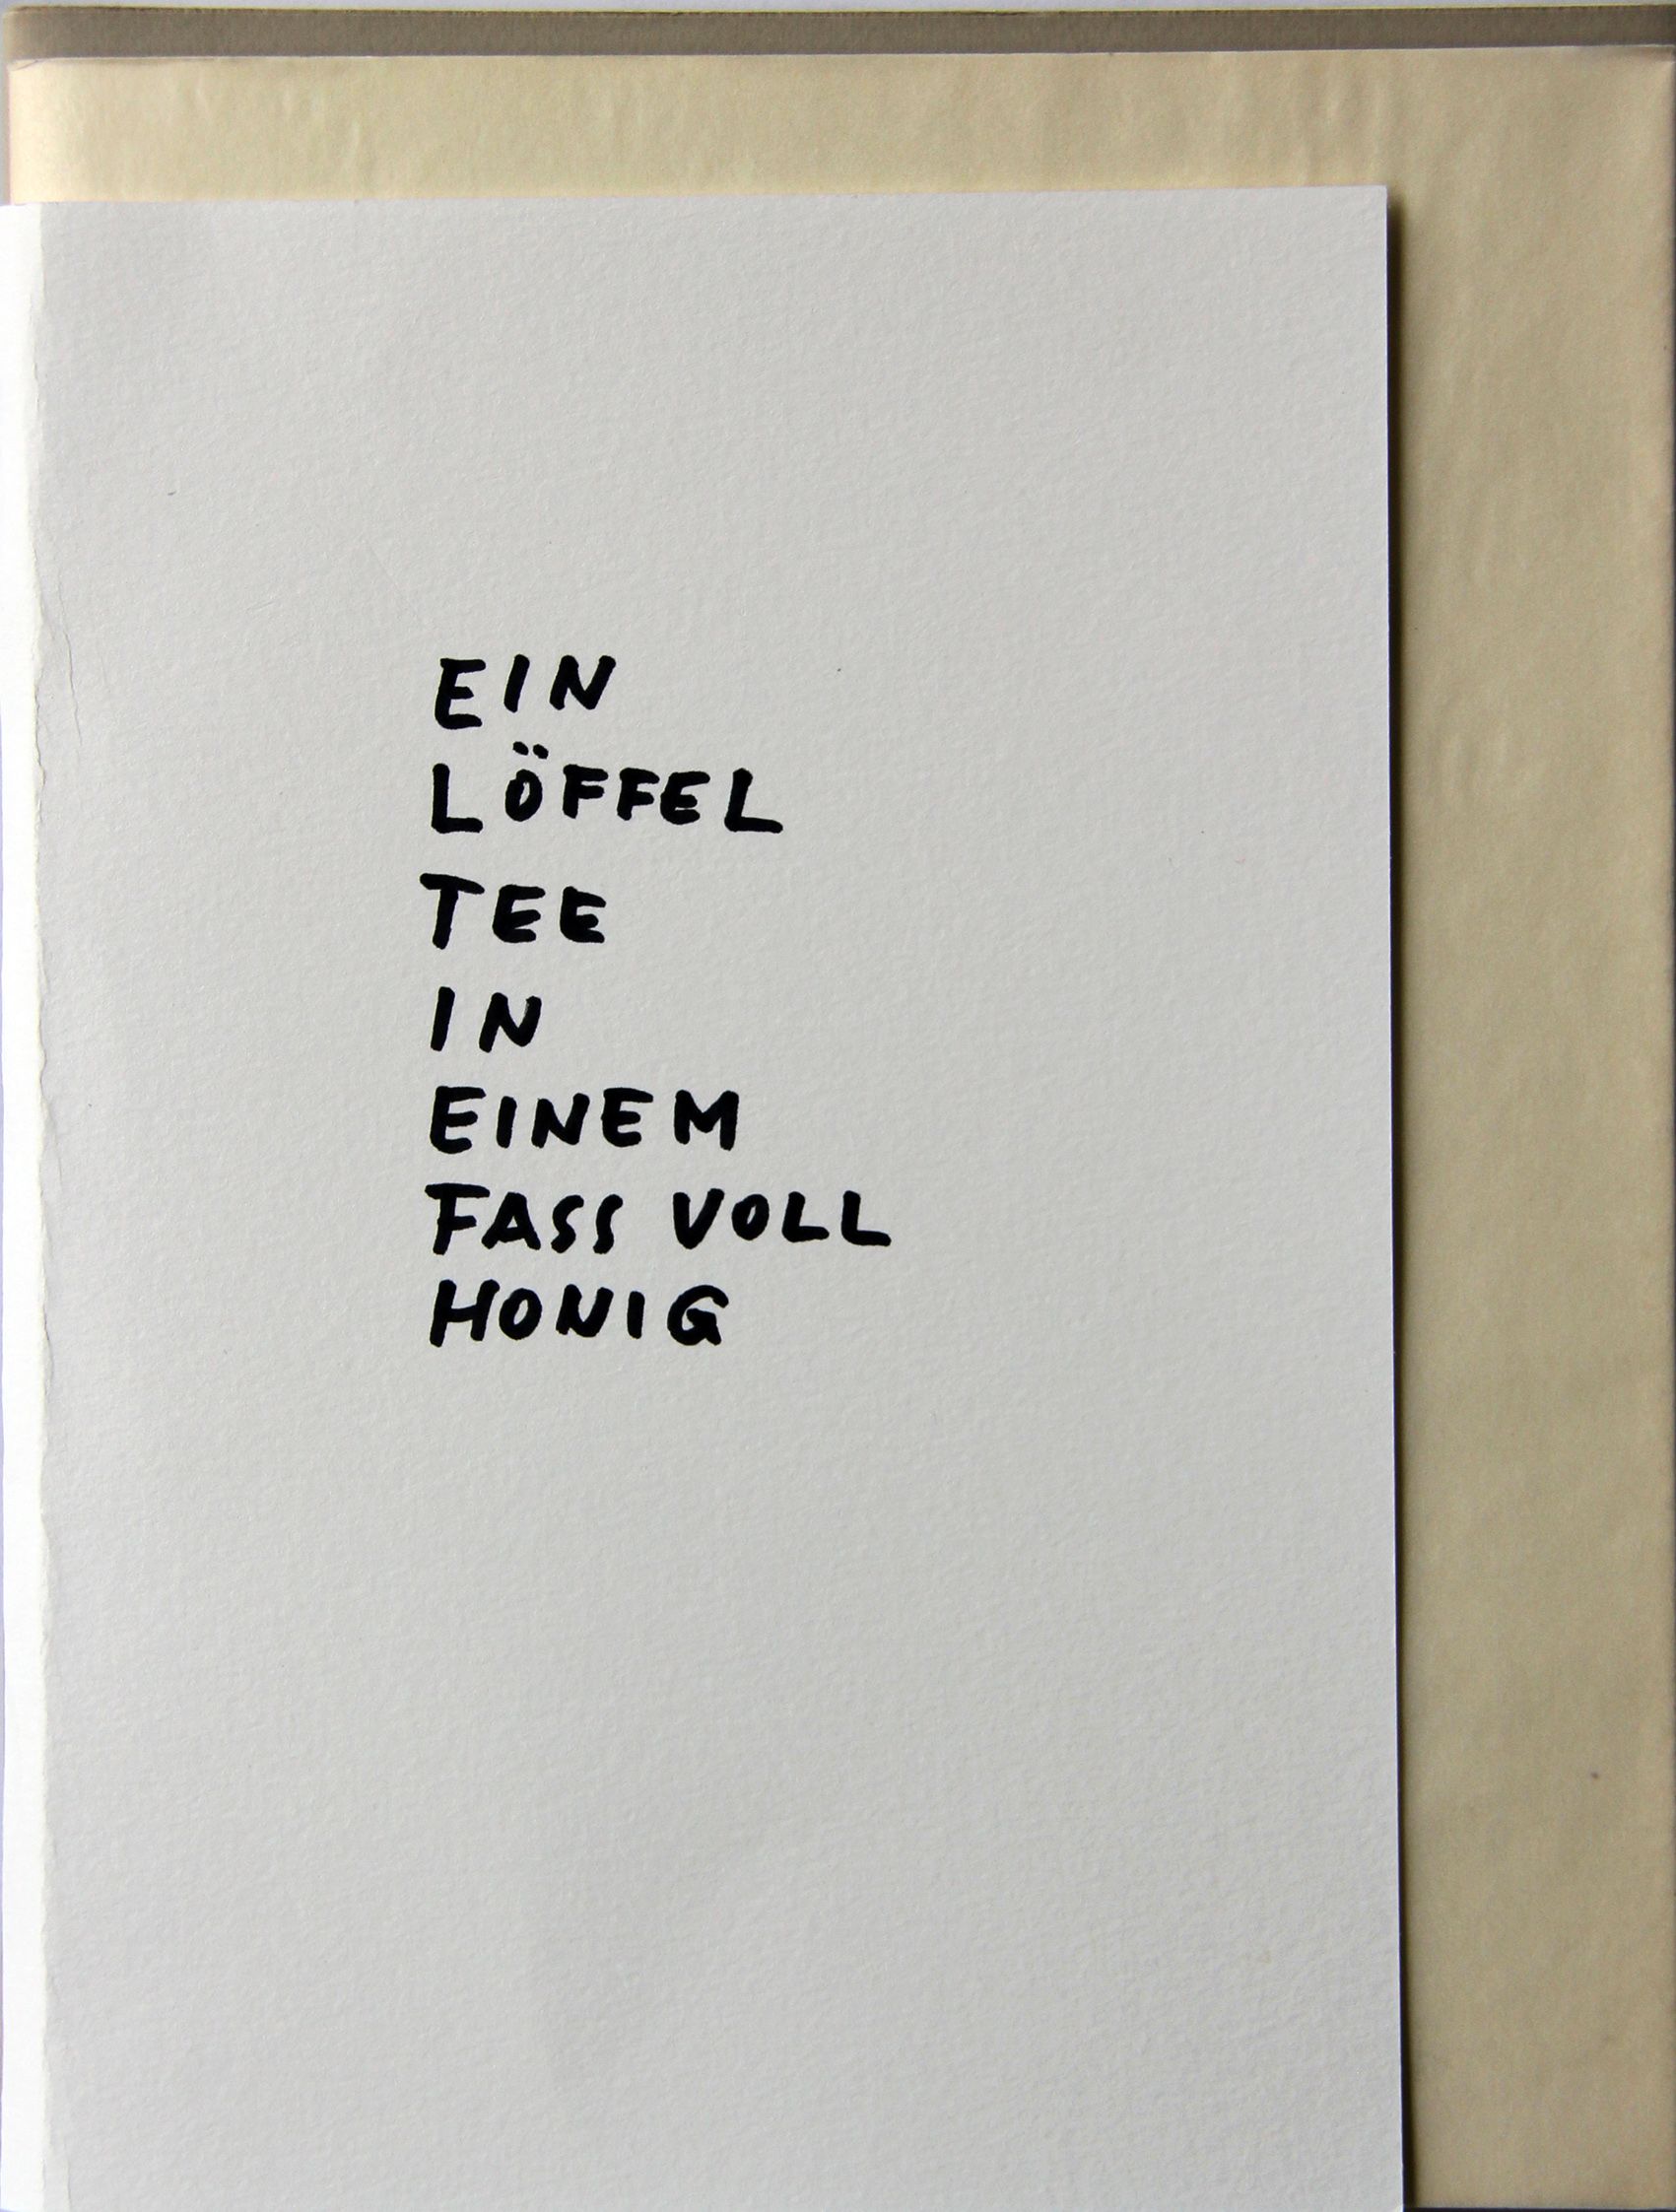 EIN
LÖFFEL
TEE
IN
EINEM
FASS VOLL
HONIG